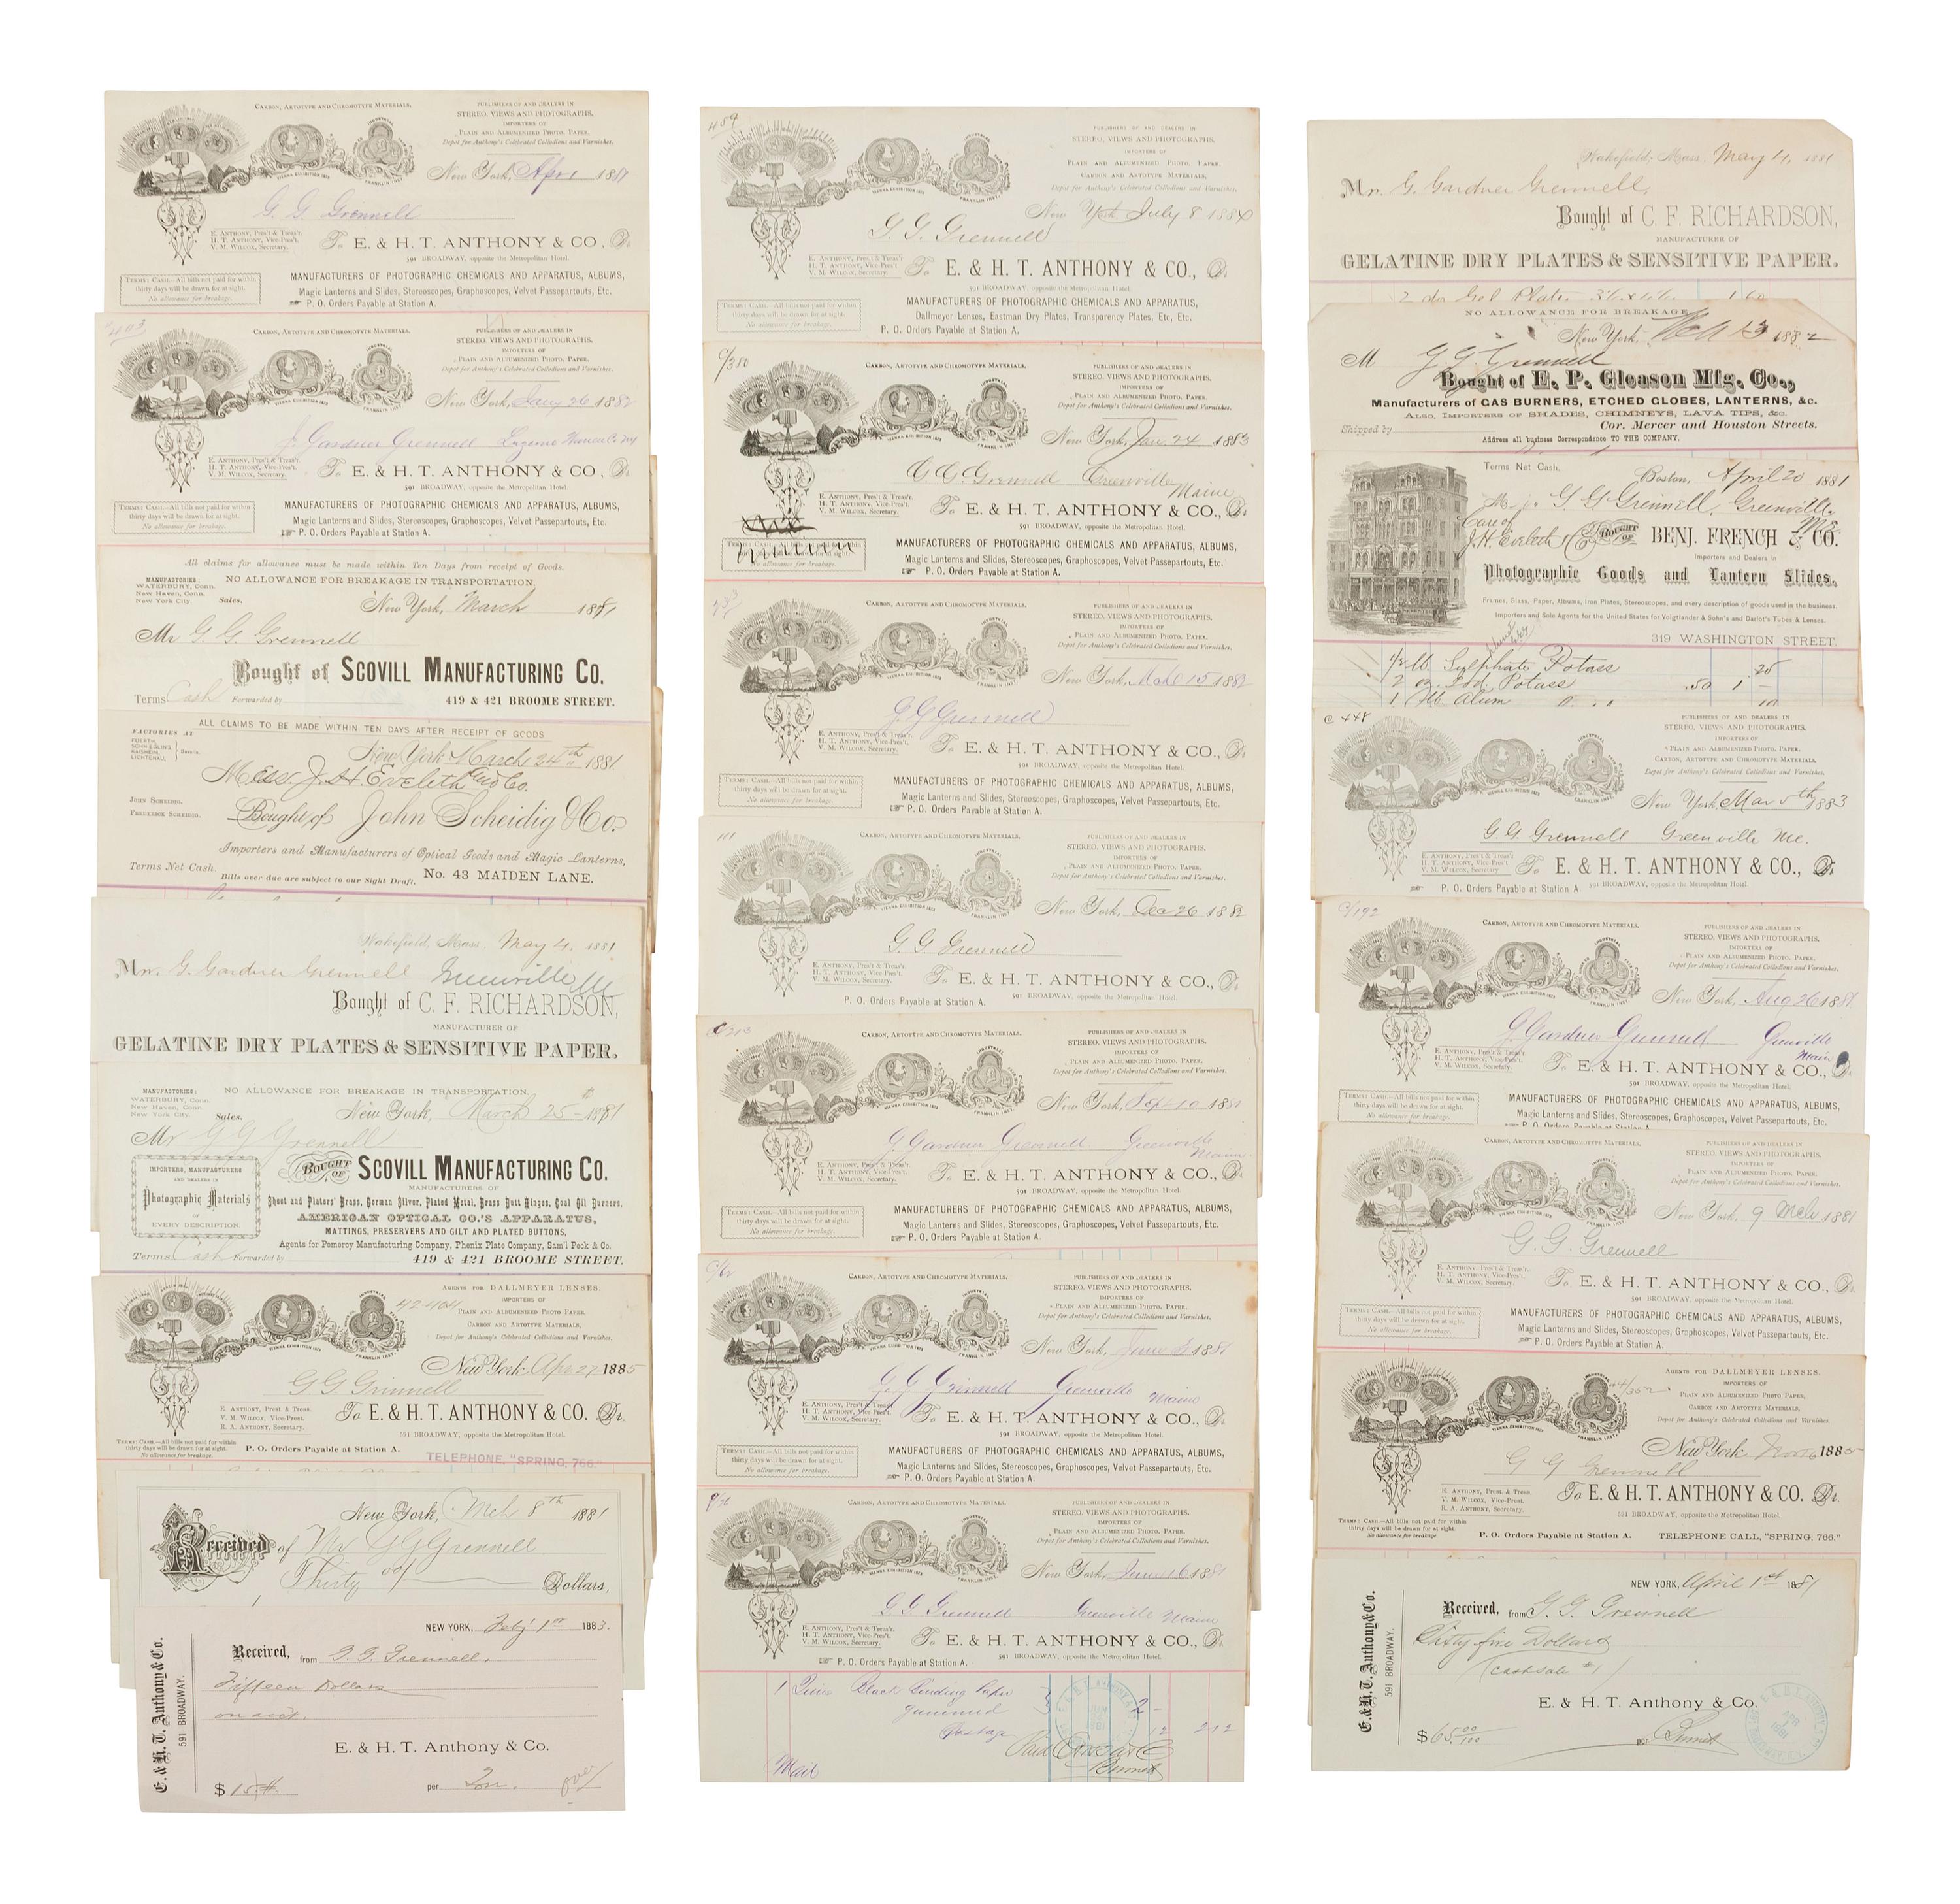 CARBON, ARTOTYPE AND CHROMOTYPE MATERIALS.
PUBLISHERS OF AND DEALERS IN
STEREO. VIEWS AND PHOTOGRAPHS.
IMPORTERS OF
PLAIN AND ALBUMENIZED PHOTO. PAPER.
Depot for Anthony's Celebrated Collodions and Varnishes.
VIENNA EXHIBITION 1873
FRANKLIN INST.
New York, Apr 1 1881
G. G. Grennell
E. ANTHONY, Pres't & Treas'r.
H. T. ANTHONY, Vice-Pres't.
V. M. WILCOX, Secretary.
To E. & H. T. ANTHONY & CO., Dr.
591 BROADWAY, opposite the Metropolitan Hotel.
TERMS: CASH.—All bills not paid for within
thirty days will be drawn for at sight.
No allowance for breakage.
MANUFACTURERS OF PHOTOGRAPHIC CHEMICALS AND APPARATUS, ALBUMS,
Magic Lanterns and Slides, Stereoscopes, Graphoscopes, Velvet Passepartouts, Etc.
P. O. Orders Payable at Station A.
CARBON, ARTOTYPE AND CHROMOTYPE MATERIALS.
PUBLISHERS OF AND DEALERS IN
STEREO. VIEWS AND PHOTOGRAPHS.
IMPORTERS OF
PLAIN AND ALBUMENIZED PHOTO. PAPER.
Depot for Anthony's Celebrated Collodions and Varnishes.
New York, Jany 26 1882
G. Gardner Grennell Luzerne Warren Co NY
E. ANTHONY, Pres't & Treas'r.
H. T. ANTHONY, Vice-Pres't.
V. M. WILCOX, Secretary.
To E. & H. T. ANTHONY & CO., Dr.
591 BROADWAY, opposite the Metropolitan Hotel.
TERMS: CASH.—All bills not paid for within
thirty days will be drawn for at sight.
No allowance for breakage.
MANUFACTURERS OF PHOTOGRAPHIC CHEMICALS AND APPARATUS, ALBUMS,
Magic Lanterns and Slides, Stereoscopes, Graphoscopes, Velvet Passepartouts, Etc.
P. O. Orders Payable at Station A.
All claims for allowance must be made within Ten Days from receipt of Goods.
MANUFACTORIES:
WATERBURY, Conn.
New Haven, Conn.
New York City.
NO ALLOWANCE FOR BREAKAGE IN TRANSPORTATION.
Sales.
New York, March 1881
Mr G. G. Grennell
Bought of SCOVILL MANUFACTURING CO.
Terms Cash Forwarded by
419 & 421 BROOME STREET.
ALL CLAIMS TO BE MADE WITHIN TEN DAYS AFTER RECEIPT OF GOODS
FACTORIES AT
FUERTH,
Bavaria.
New York March 24th 1881
Mess. J. H. Eveleth and Co.
JOHN SCHEIDIG.
FREDERICK SCHEIDIG.
Bought of John Scheidig & Co.
Importers and Manufacturers of Optical Goods and Magic Lanterns,
Terms Net Cash.
Bills over due are subject to our Sight Draft.
No. 43 MAIDEN LANE.
Wakefield, Mass. May 4, 1881
Mr. G. Gardner Grennell Greenville Me
Bought of C. F. RICHARDSON,
MANUFACTURER OF
GELATINE DRY PLATES & SENSITIVE PAPER.
MANUFACTORIES:
WATERBURY, Conn.
New Haven, Conn.
New York City.
NO ALLOWANCE FOR BREAKAGE IN TRANSPORTATION.
Sales.
New York, March 25th 1881
Mr G G Grennell
IMPORTERS, MANUFACTURERS
AND DEALERS IN
Photographic Materials
OF
EVERY DESCRIPTION.
BOUGHT OF SCOVILL MANUFACTURING CO.
MANUFACTURERS OF
Sheet and Platers' Brass, German Silver, Plated Metal, Brass Butt Hinges, Coal Oil Burners.
AMERICAN OPTICAL CO.'S APPARATUS,
MATTINGS, PRESERVERS AND GILT AND PLATED BUTTONS,
Agents for Pomeroy Manufacturing Company, Phenix Plate Company, Sam'l Peck & Co.
Terms Cash Forwarded by
419 & 421 BROOME STREET.
AGENTS FOR DALLMEYER LENSES.
IMPORTERS OF
PLAIN AND ALBUMENIZED PHOTO PAPER,
CARBON AND ARTOTYPE MATERIALS,
Depot for Anthony's Celebrated Collodions and Varnishes.
New York Apr 27 1885
G. G. Grinnell
E. ANTHONY, Prest. & Treas.
V. M. WILCOX, Vice-Prest.
R. A. ANTHONY, Secretary.
To E. & H. T. ANTHONY & CO. Dr.
591 BROADWAY, opposite the Metropolitan Hotel.
TERMS: CASH.—All bills not paid for within
thirty days will be drawn for at sight.
No allowance for breakage.
P. O. Orders Payable at Station A.
TELEPHONE, "SPRING, 766."
New York, Mch 8th 1881
Received of Mr G G Grennell
Thirty Dollars,
E. & H. T. Anthony & Co.
591 BROADWAY.
NEW YORK, Feby 1st 1883.
Received, from G. G. Grennell.
Fifteen Dollars
on acct.
E. & H. T. Anthony & Co.
$ 15
per
over
459
PUBLISHERS OF AND DEALERS IN
STEREO. VIEWS AND PHOTOGRAPHS.
IMPORTERS OF
PLAIN AND ALBUMENIZED PHOTO. PAPER.
CARBON AND ARTOTYPE MATERIALS,
Depot for Anthony's Celebrated Collodions and Varnishes.
New York July 8 1884
G. G. Grennell
E. ANTHONY, Pres't & Treas'r.
H. T. ANTHONY, Vice-Pres't.
V. M. WILCOX, Secretary.
To E. & H. T. ANTHONY & CO., Dr.
591 BROADWAY, opposite the Metropolitan Hotel.
TERMS: CASH.—All bills not paid for within
thirty days will be drawn for at sight.
No allowance for breakage.
MANUFACTURERS OF PHOTOGRAPHIC CHEMICALS AND APPARATUS,
Dallmeyer Lenses, Eastman Dry Plates, Transparency Plates, Etc, Etc.
P. O. Orders Payable at Station A.
C/380
CARBON, ARTOTYPE AND CHROMOTYPE MATERIALS.
PUBLISHERS OF AND DEALERS IN
STEREO. VIEWS AND PHOTOGRAPHS.
IMPORTERS OF
PLAIN AND ALBUMENIZED PHOTO. PAPER.
Depot for Anthony's Celebrated Collodions and Varnishes.
New York, Jan. 24 1883
G. G. Grennell Greenville Maine
E. ANTHONY, Pres't & Treas'r.
H. T. ANTHONY, Vice-Pres't.
V. M. WILCOX, Secretary.
To E. & H. T. ANTHONY & CO., Dr.
591 BROADWAY, opposite the Metropolitan Hotel.
MANUFACTURERS OF PHOTOGRAPHIC CHEMICALS AND APPARATUS, ALBUMS,
Magic Lanterns and Slides, Stereoscopes, Graphoscopes, Velvet Passepartouts, Etc.
P. O. Orders Payable at Station A.
CARBON, ARTOTYPE AND CHROMOTYPE MATERIALS.
PUBLISHERS OF AND DEALERS IN
STEREO. VIEWS AND PHOTOGRAPHS.
IMPORTERS OF
PLAIN AND ALBUMENIZED PHOTO. PAPER.
Depot for Anthony's Celebrated Collodions and Varnishes.
New York, Mch 15 1882
G G Grennell
E. ANTHONY, Pres't & Treas'r.
H. T. ANTHONY, Vice-Pres't.
V. M. WILCOX, Secretary.
To E. & H. T. ANTHONY & CO., Dr.
591 BROADWAY, opposite the Metropolitan Hotel.
TERMS: CASH.—All bills not paid for within
thirty days will be drawn for at sight.
No allowance for breakage.
MANUFACTURERS OF PHOTOGRAPHIC CHEMICALS AND APPARATUS, ALBUMS,
Magic Lanterns and Slides, Stereoscopes, Graphoscopes, Velvet Passepartouts, Etc.
P. O. Orders Payable at Station A.
CARBON, ARTOTYPE AND CHROMOTYPE MATERIALS.
PUBLISHERS OF AND DEALERS IN
STEREO. VIEWS AND PHOTOGRAPHS.
IMPORTERS OF
PLAIN AND ALBUMENIZED PHOTO. PAPER.
Depot for Anthony's Celebrated Collodions and Varnishes.
New York, Dec 26 1882
G. G. Grennell
E. ANTHONY, Pres't & Treas'r.
H. T. ANTHONY, Vice-Pres't.
V. M. WILCOX, Secretary.
To E. & H. T. ANTHONY & CO., Dr.
P. O. Orders Payable at Station A.
591 BROADWAY, opposite the Metropolitan Hotel.
CARBON, ARTOTYPE AND CHROMOTYPE MATERIALS.
PUBLISHERS OF AND DEALERS IN
STEREO. VIEWS AND PHOTOGRAPHS.
IMPORTERS OF
PLAIN AND ALBUMENIZED PHOTO. PAPER.
Depot for Anthony's Celebrated Collodions and Varnishes.
New York, Sept 10 1881
G Gardner Grennell Greenville Maine
E. ANTHONY, Pres't & Treas'r.
H. T. ANTHONY, Vice-Pres't.
V. M. WILCOX, Secretary.
To E. & H. T. ANTHONY & CO., Dr.
591 BROADWAY, opposite the Metropolitan Hotel.
TERMS: CASH.—All bills not paid for within
thirty days will be drawn for at sight.
No allowance for breakage.
MANUFACTURERS OF PHOTOGRAPHIC CHEMICALS AND APPARATUS, ALBUMS,
Magic Lanterns and Slides, Stereoscopes, Graphoscopes, Velvet Passepartouts, Etc.
P. O. Orders Payable at Station A.
CARBON, ARTOTYPE AND CHROMOTYPE MATERIALS.
PUBLISHERS OF AND DEALERS IN
STEREO. VIEWS AND PHOTOGRAPHS.
IMPORTERS OF
PLAIN AND ALBUMENIZED PHOTO. PAPER.
Depot for Anthony's Celebrated Collodions and Varnishes.
New York, June 1881
G G Grinnell Greenville Maine
E. ANTHONY, Pres't & Treas'r.
H. T. ANTHONY, Vice-Pres't.
V. M. WILCOX, Secretary.
To E. & H. T. ANTHONY & CO., Dr.
591 BROADWAY, opposite the Metropolitan Hotel.
TERMS: CASH.—All bills not paid for within
thirty days will be drawn for at sight.
No allowance for breakage.
MANUFACTURERS OF PHOTOGRAPHIC CHEMICALS AND APPARATUS, ALBUMS,
Magic Lanterns and Slides, Stereoscopes, Graphoscopes, Velvet Passepartouts, Etc.
P. O. Orders Payable at Station A.
CARBON, ARTOTYPE AND CHROMOTYPE MATERIALS.
PUBLISHERS OF AND DEALERS IN
STEREO. VIEWS AND PHOTOGRAPHS.
IMPORTERS OF
PLAIN AND ALBUMENIZED PHOTO. PAPER.
Depot for Anthony's Celebrated Collodions and Varnishes.
New York, June 16 1881
G G Grennell Greenville Maine
E. ANTHONY, Pres't & Treas'r.
H. T. ANTHONY, Vice-Pres't.
V. M. WILCOX, Secretary.
To E. & H. T. ANTHONY & CO., Dr.
P. O. Orders Payable at Station A.
591 BROADWAY, opposite the Metropolitan Hotel.
1 Black Binding Paper
gummed 2 -
Postage 12 2 12
Mail
Wakefield, Mass. May 4, 1881
Mr. G. Gardner Grennell,
Bought of C. F. RICHARDSON,
MANUFACTURER OF
GELATINE DRY PLATES & SENSITIVE PAPER.
2 doz Gel Plates 1 60
NO ALLOWANCE FOR BREAKAGE
New York, 1882
M G G Grennell
Bought of E. P. Gleason Mfg. Co.,
Manufacturers of GAS BURNERS, ETCHED GLOBES, LANTERNS, &c.
ALSO, IMPORTERS OF SHADES, CHIMNEYS, LAVA TIPS, &c.
Shipped by
Cor. Mercer and Houston Streets.
Address all business Correspondence TO THE COMPANY.
Terms Net Cash.
Boston, April 20 1881
Mr G. G. Grennell, Greenville, Me
Care of
J. H. Eveleth & Co
BOUGHT OF BENJ. FRENCH & CO.
Importers and Dealers in
Photographic Goods and Lantern Slides.
Frames, Glass, Paper, Albums, Iron Plates, Stereoscopes, and every description of goods used in the business.
Importers and Sole Agents for the United States for Voigtlander & Sohn's and Darlot's Tubes & Lenses.
319 WASHINGTON STREET.
1/2 lb. Sulphate Potass
2 oz. Iod. Potass .50 1 -
1 lb Alum 10
C 448
PUBLISHERS OF AND DEALERS IN
STEREO. VIEWS AND PHOTOGRAPHS.
IMPORTERS OF
PLAIN AND ALBUMENIZED PHOTO. PAPER.
CARBON AND ARTOTYPE MATERIALS,
Depot for Anthony's Celebrated Collodions and Varnishes.
New York Mar 5th 1883
G G Grennell Greenville Me.
E. ANTHONY, Pres't & Treas'r.
H. T. ANTHONY, Vice-Pres't.
V. M. WILCOX, Secretary.
To E. & H. T. ANTHONY & CO., Dr.
P. O. Orders Payable at Station A.
591 BROADWAY, opposite the Metropolitan Hotel.
C/192
CARBON, ARTOTYPE AND CHROMOTYPE MATERIALS.
PUBLISHERS OF AND DEALERS IN
STEREO. VIEWS AND PHOTOGRAPHS.
IMPORTERS OF
PLAIN AND ALBUMENIZED PHOTO. PAPER.
Depot for Anthony's Celebrated Collodions and Varnishes.
New York, Aug 26 1881
G. Gardner Grennell Greenville Maine
E. ANTHONY, Pres't & Treas'r.
H. T. ANTHONY, Vice-Pres't.
V. M. WILCOX, Secretary.
To E. & H. T. ANTHONY & CO., Dr.
591 BROADWAY, opposite the Metropolitan Hotel.
TERMS: CASH.—All bills not paid for within
thirty days will be drawn for at sight.
No allowance for breakage.
MANUFACTURERS OF PHOTOGRAPHIC CHEMICALS AND APPARATUS, ALBUMS,
Magic Lanterns and Slides, Stereoscopes, Graphoscopes, Velvet Passepartouts, Etc.
P. O. Orders Payable at Station A
CARBON, ARTOTYPE AND CHROMOTYPE MATERIALS.
PUBLISHERS OF AND DEALERS IN
STEREO. VIEWS AND PHOTOGRAPHS.
IMPORTERS OF
PLAIN AND ALBUMENIZED PHOTO. PAPER.
Depot for Anthony's Celebrated Collodions and Varnishes.
New York, 9 Mch 1881
G. G. Grennell
E. ANTHONY, Pres't & Treas'r.
H. T. ANTHONY, Vice-Pres't.
V. M. WILCOX, Secretary.
To E. & H. T. ANTHONY & CO., Dr.
591 BROADWAY, opposite the Metropolitan Hotel.
TERMS: CASH.—All bills not paid for within
thirty days will be drawn for at sight.
No allowance for breakage.
MANUFACTURERS OF PHOTOGRAPHIC CHEMICALS AND APPARATUS, ALBUMS,
Magic Lanterns and Slides, Stereoscopes, Graphoscopes, Velvet Passepartouts, Etc.
P. O. Orders Payable at Station A.
AGENTS FOR DALLMEYER LENSES.
IMPORTERS OF
PLAIN AND ALBUMENIZED PHOTO PAPER,
CARBON AND ARTOTYPE MATERIALS,
Depot for Anthony's Celebrated Collodions and Varnishes.
New York 1885
G G Grennell
E. ANTHONY, Prest. & Treas.
V. M. WILCOX, Vice-Prest.
R. A. ANTHONY, Secretary.
To E. & H. T. ANTHONY & CO. Dr.
591 BROADWAY, opposite the Metropolitan Hotel.
TERMS: CASH.—All bills not paid for within
thirty days will be drawn for at sight.
No allowance for breakage.
P. O. Orders Payable at Station A.
TELEPHONE CALL, "SPRING, 766."
E. & H. T. Anthony & Co.
591 BROADWAY.
NEW YORK, April 1st 1881
Received, from G. G. Grennell
Sixty five Dollars
(cash sale #1)
E. & H. T. Anthony & Co.
$ 65 00/100
per